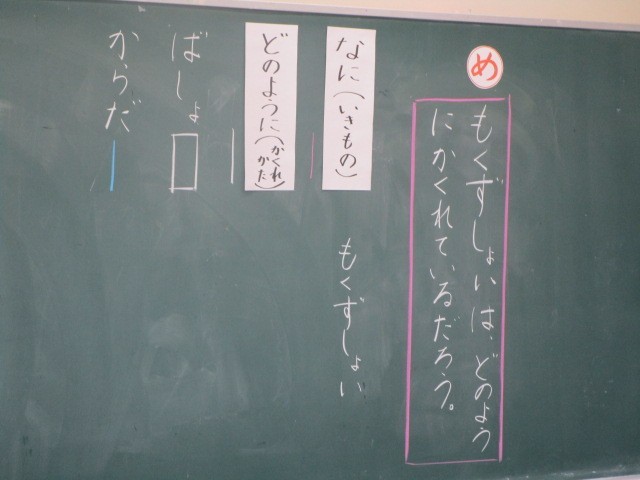 め
もくずしょいは、どのよう
にかくれているだろう。
なに(いきもの)
もくずしょい
どのように(かくれ
かた)
ばしょ
からだ